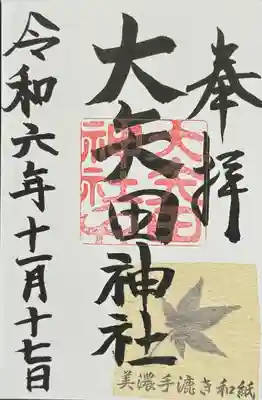 奉拝
大矢田神社
大矢田
神社印
令和六年十一月十七日
美濃手漉き和紙